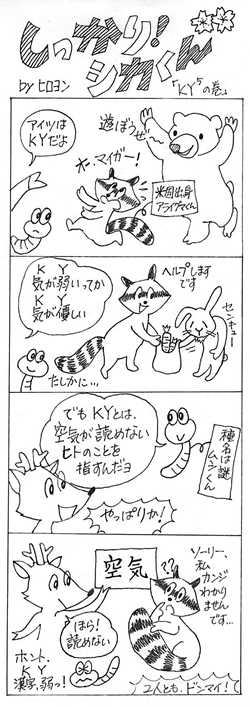 しっかり！
シカくん
by ヒロヨン
「KY⁵の巻」
アイツは
KYだよ
遊ぼうぜ
オーマイガー！
米国出身
アライグマくん
K Y
気が弱いってか
K Y
気が優しい
たしかに…
ヘルプします
です
センキュー
でもKYとは、
空気が読めない
ヒトのことを
指すんだヨ
種名は謎
ムシくん
やっぱりか！
空気
ソーリー、
私
カンジ
わかり
ません
です…
??
ほら！
読めない
ホント、
K Y
漢字、弱っ！
2人とも、ドンマイ！